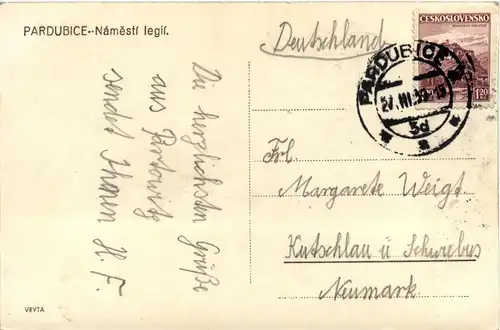 PARDUBICE--Náměstí legií.
Die herzlichsten Grüße
aus Pardowitz
sendet Ihnen H. F.
VRYTA
Deutschland
ČESKOSLOVENSKO
1.20
PARDUBICE
27.III.39-15
5d
Frl.
Margarete Weigt
Kutschlau ü Schwebus
Neumark.